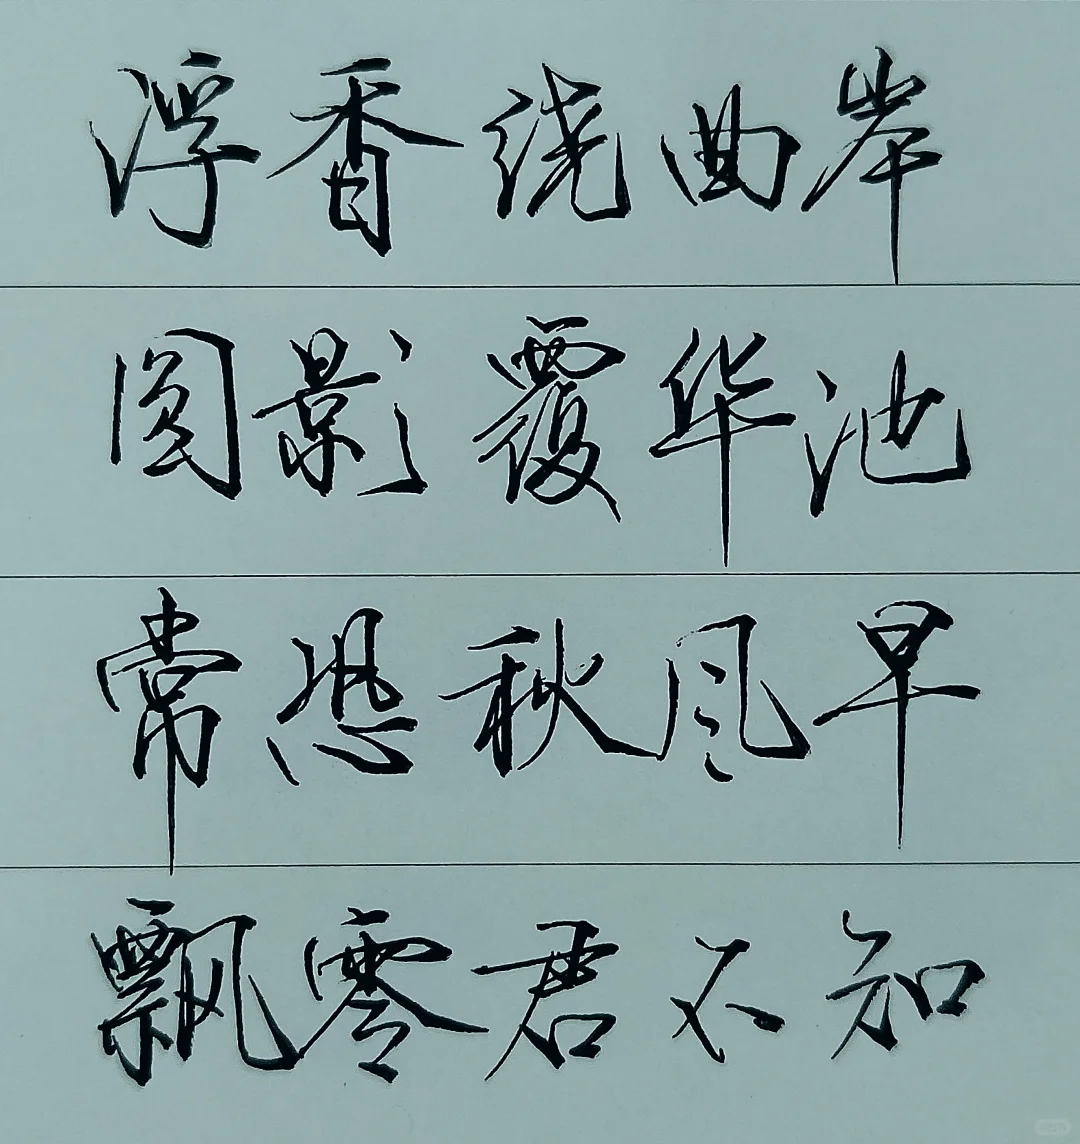 浮香绕曲岸
圆影覆华池
常恐秋风早
飘零君不知